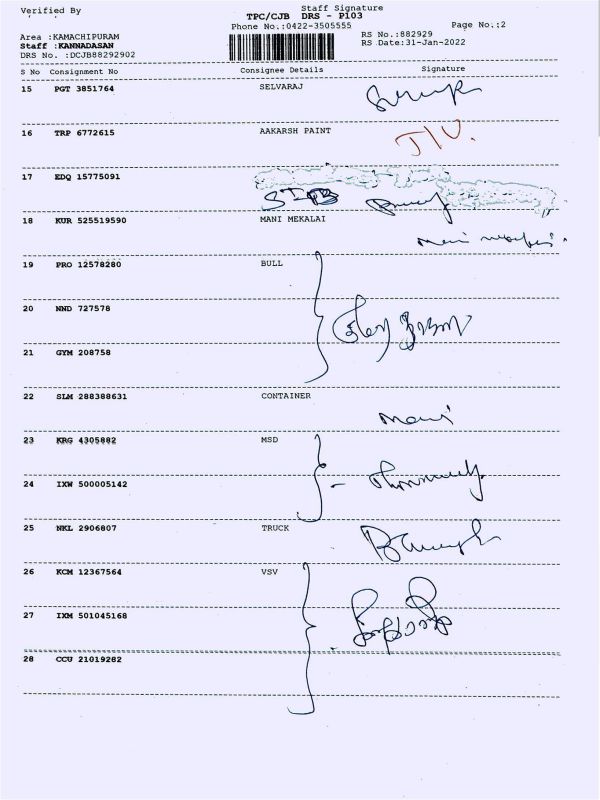 Verified By
Staff Signature
TPC/CJB DRS - P103
Phone No.:0422-3505555
Page No.:2
Area :KAMACHIPURAM
RS No.:882929
Staff :KANNADASAN
RS Date:31-Jan-2022
DRS No. :DCJB88292902
S No Consignment No Consignee Details Signature
15 PGT 3851764 SELVARAJ
16 TRP 6772615 AAKARSH PAINT
17 EDQ 15775091
18 KUR 525519590 MANI MEKALAI
19 PRO 12578280 BULL
20 NWD 727578
21 GYM 208758
22 SLM 288388631 CONTAINER
Mani
23 KRG 4305882 MSD
24 IXW 500005142
25 NKL 2906807 TRUCK
26 KCM 12367564 VSV
27 IXM 501045168
28 CCU 21019282